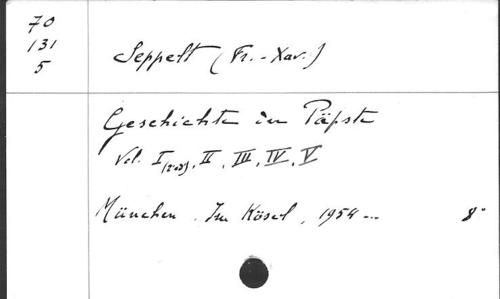 70
131
5
Seppelt (Fr.-Xav.)
Geschichte der Päpste
Vol. I, II, III, IV, V
München. Im Kösel, 1954...
8°